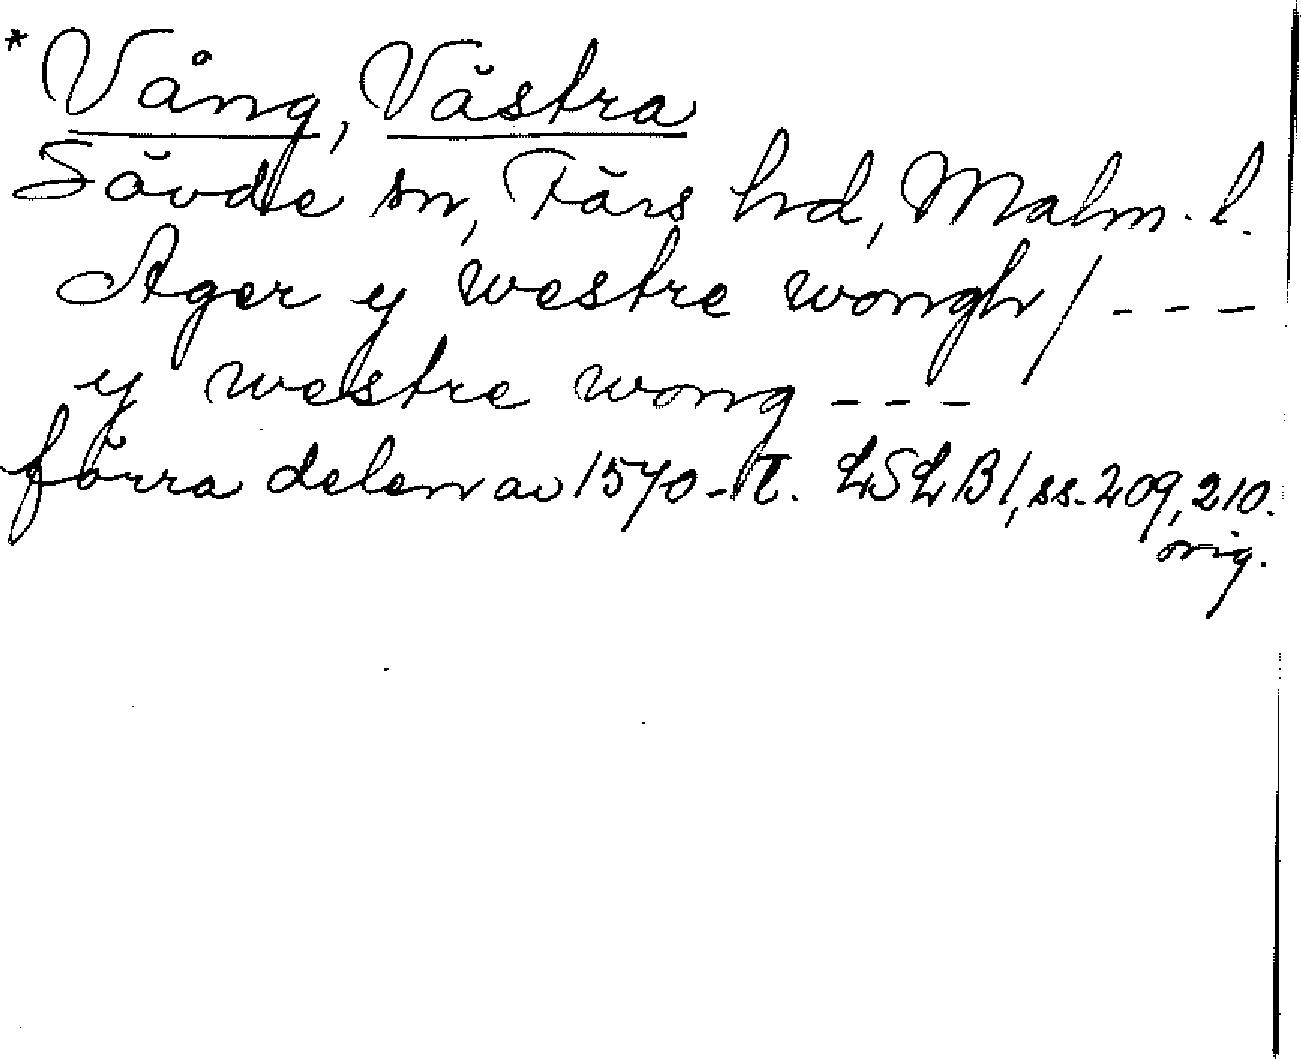 * Vång, Västra
Sövde sn, Färs hd, Malm. l.
Ager y westre wongh / - - -
y westre wong - - -
förra delen av 1570-t. LSLB 1, ss. 209, 210.
orig.